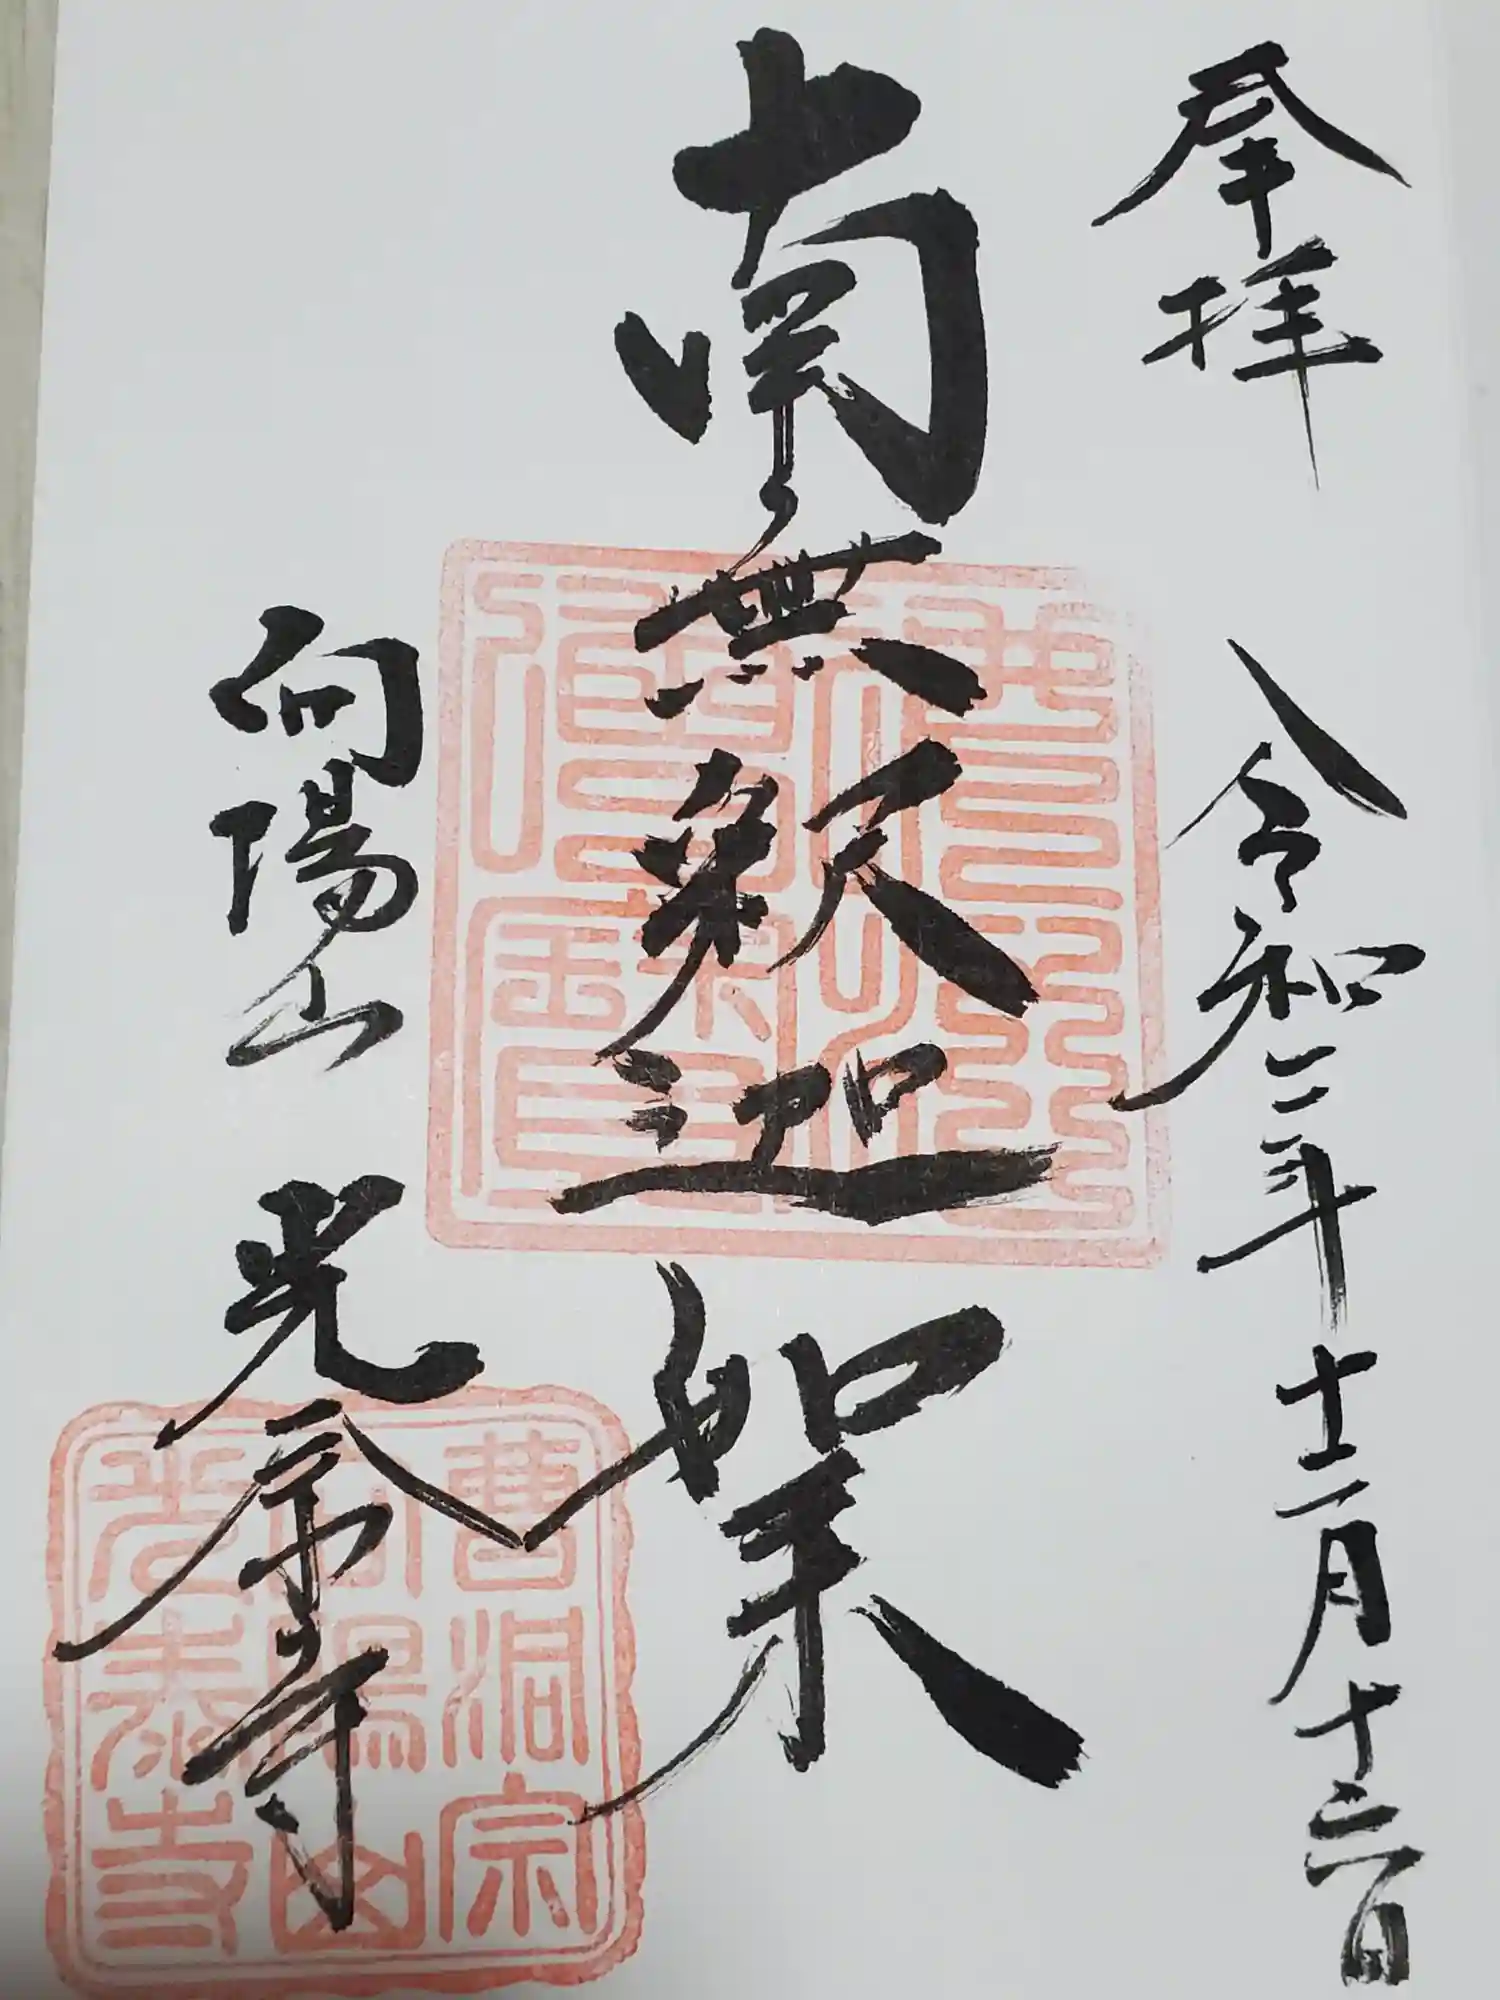 奉拝 令和二年十二月十六日
南無釈迦如来
向陽山 光泰寺
曹洞宗
向陽山
光泰寺